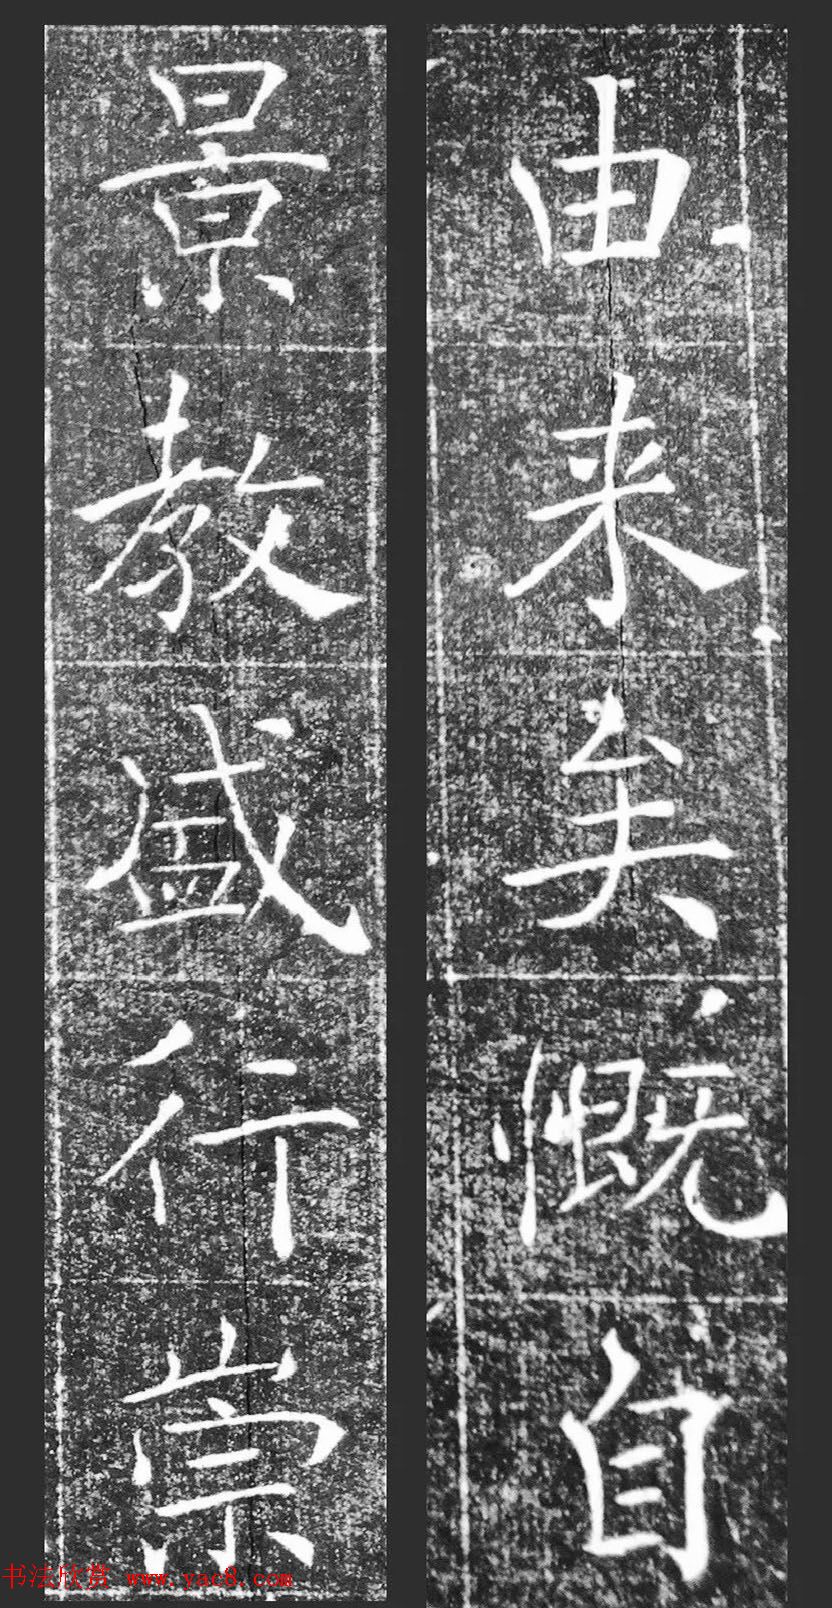 由来矣慨自
景教盛行崇
书法欣赏 www.yac8.com